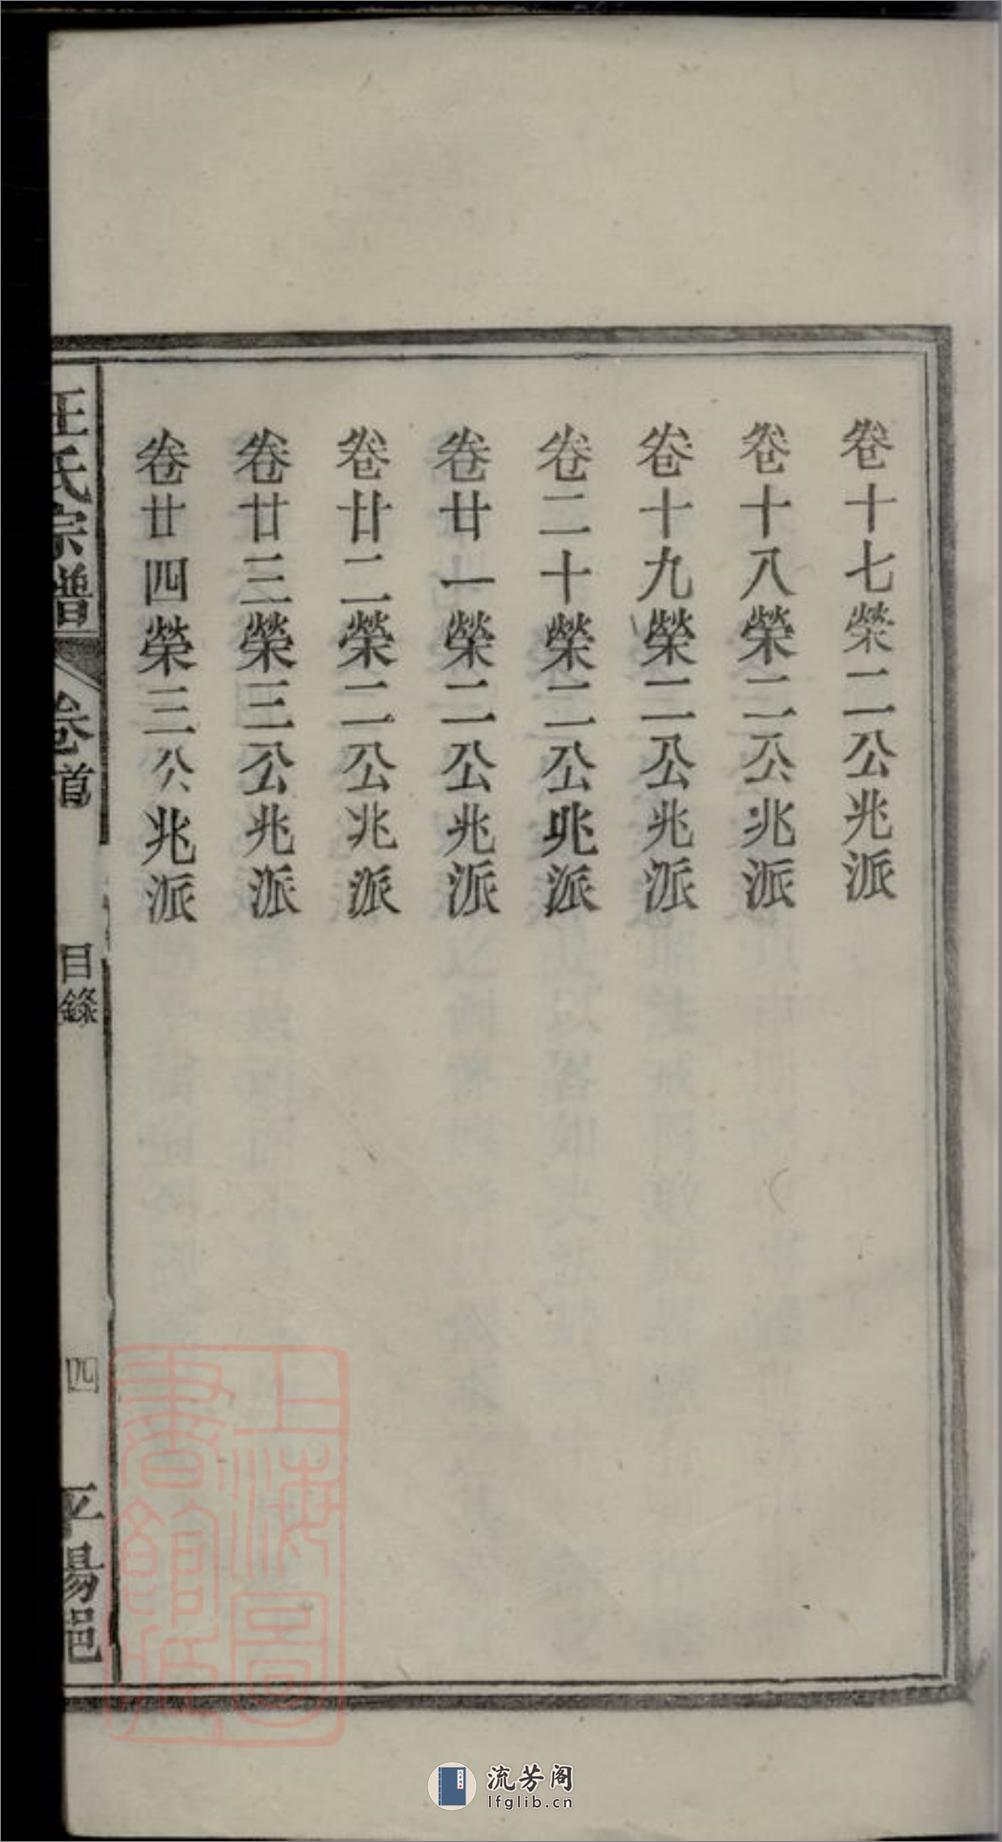 卷十七榮二公兆派
卷十八榮二公兆派
卷十九榮二公兆派
卷二十榮二公兆派
卷廿一榮二公兆派
卷廿二榮二公兆派
卷廿三榮三公兆派
卷廿四榮三公兆派
汪氏宗譜
卷首
目錄
四
平陽
上海圖書館藏
流芳阁
lfglib.cn